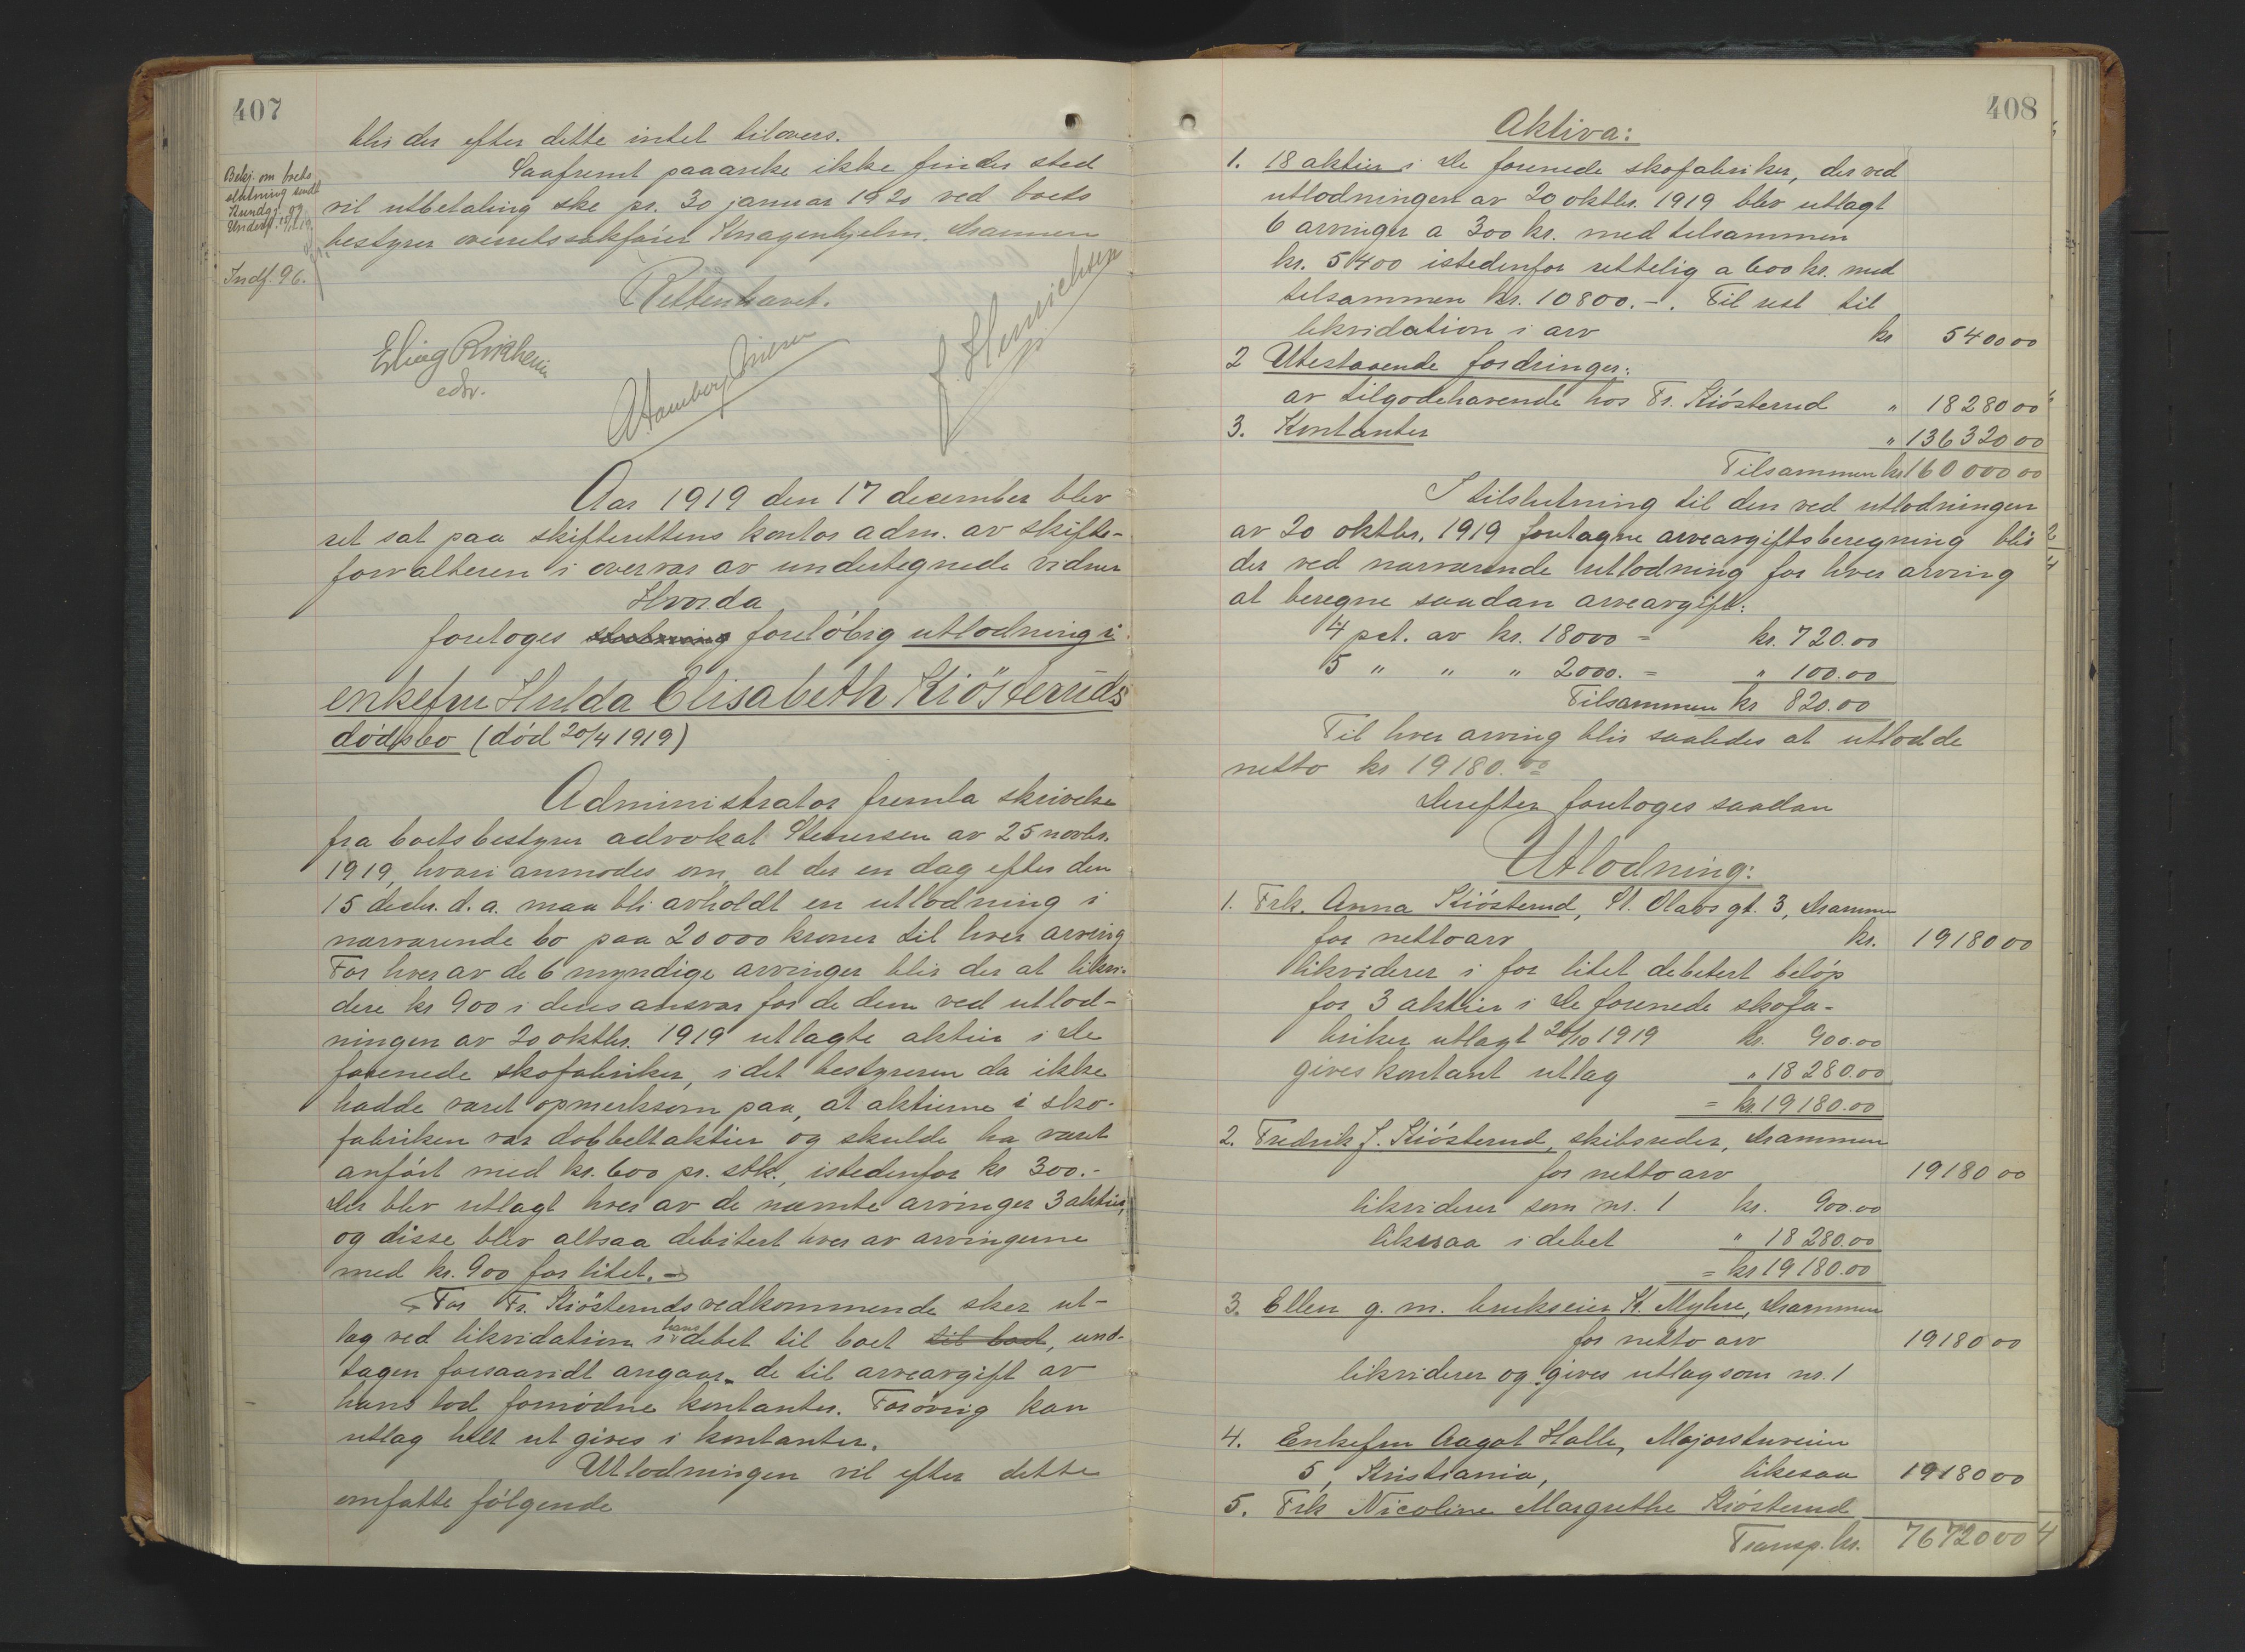 407
blir der efter dette intet tilovers.
Saafremt paaanke ikke finder sted
vil utbetaling ske pr. 30 januar 1920 ved boets
bestyrer overretssakfører Knagenhjelm, Drammen
Bekj. om boets
slutning sendt
Kundgj. og
Indf. 96.
Retten hævet.
Aar 1919 den 17 december blev
ret sat paa skifterettens kontor adm. av skifte-
forvalteren i overvær av undertegnede vidner
Hvorda
foretoges foreløbig utlodning i
enkefru Hulda Elisabeth Kiösteruds
dødsbo (død 20/4 1919)
Administrator fremla skrivelse
fra boets bestyrer advokat Steenersen av 25 novbr.
1919, hvori anmodes om, at der en dag efter den
15 decbr. d. a. maa bli avholdt en utlodning i
nærværende bo paa 20000 kroner til hver arving
For hver av de 6 myndige arvinger blir der at likvi-
dere kr 900 i deres ansvar for de dem ved utlod-
ningen av 20 oktbr. 1919 utlagte aktier i De
forenede skofabriker, idet bestyreren da ikke
hadde været opmerksom paa, at aktierne i sko-
fabriken var dobbeltaktier og skulde ha været
anført med kr. 600 pr. stk., istedenfor kr 300.-
Der blev utlagt hver av de nævnte arvinger 3 aktier,
og disse blev altsaa debitert hver av arvingerne
med kr. 900 for litet.-
For Fr. Kiösteruds vedkommende sker ut-
lag ved likvidation i hans debet til boet til boet, und-
tagen forsaavidt angaar de til arveavgift av
hans lod fornødne kontanter. Forøvrig kan
utlag helt ut gives i kontanter.
Utlodningen vil efter dette
omfatte følgende
408
Aktiva:
1. 18 aktier i De forenede skofabriker, der ved
utlodningen av 20 oktbr. 1919 blev utlagt
6 arvinger a 300 kr. med tilsammen
kr. 5400 istedenfor rettelig a 600 kr. med
tilsammen kr. 10800.-. Til rest til
likvidation i arv kr 5400 00
2 Utestaaende fordringer:
av tilgodehavende hos Fr. Kiösterud " 18280 00
3. Kontanter " 136320 00
Tilsammen kr 160000 00
I tilslutning til den ved utlodningen
av 20 oktbr. 1919 foretagne arveavgiftsberegning blir
der ved nærværende utlodning for hver arving
at beregne saadan arveavgift:
4 pct. av kr. 18000 = kr. 720.00
5 " " " 2000. = " 100.00
Tilsammen kr 820.00
Til hver arving blir saaledes at utlodde
netto kr 19180.00
Derefter foretoges saadan
Utlodning:
1. Frk. Anna Kiösterud, St. Olavs gt. 3, Drammen
for nettoarv kr. 19180 00
likviderer i for litet debetert beløp
for 3 aktier i De forenede skofa-
briker utlagt 20/10 1919 kr. 900.00
gives kontant utlag " 18280.00
= kr. 19180.00
2. Fredrik J. Kiösterud, skibsreder, Drammen
for netto arv 19180 00
likviderer som nr. 1 kr. 900.00
likesaa i debet " 18280.00
= kr 19180.00
3. Ellen g. m. brukseier Kr. Myhre, Drammen
for netto arv 19180 00
likviderer og gives utlag som nr. 1
4. Enkefru Aagot Halle, Majorstuveien
5, Kristiania, likesaa 19180 00
5. Frk Nicoline Margrethe Kiösterud
Transp. kr. 76720 00